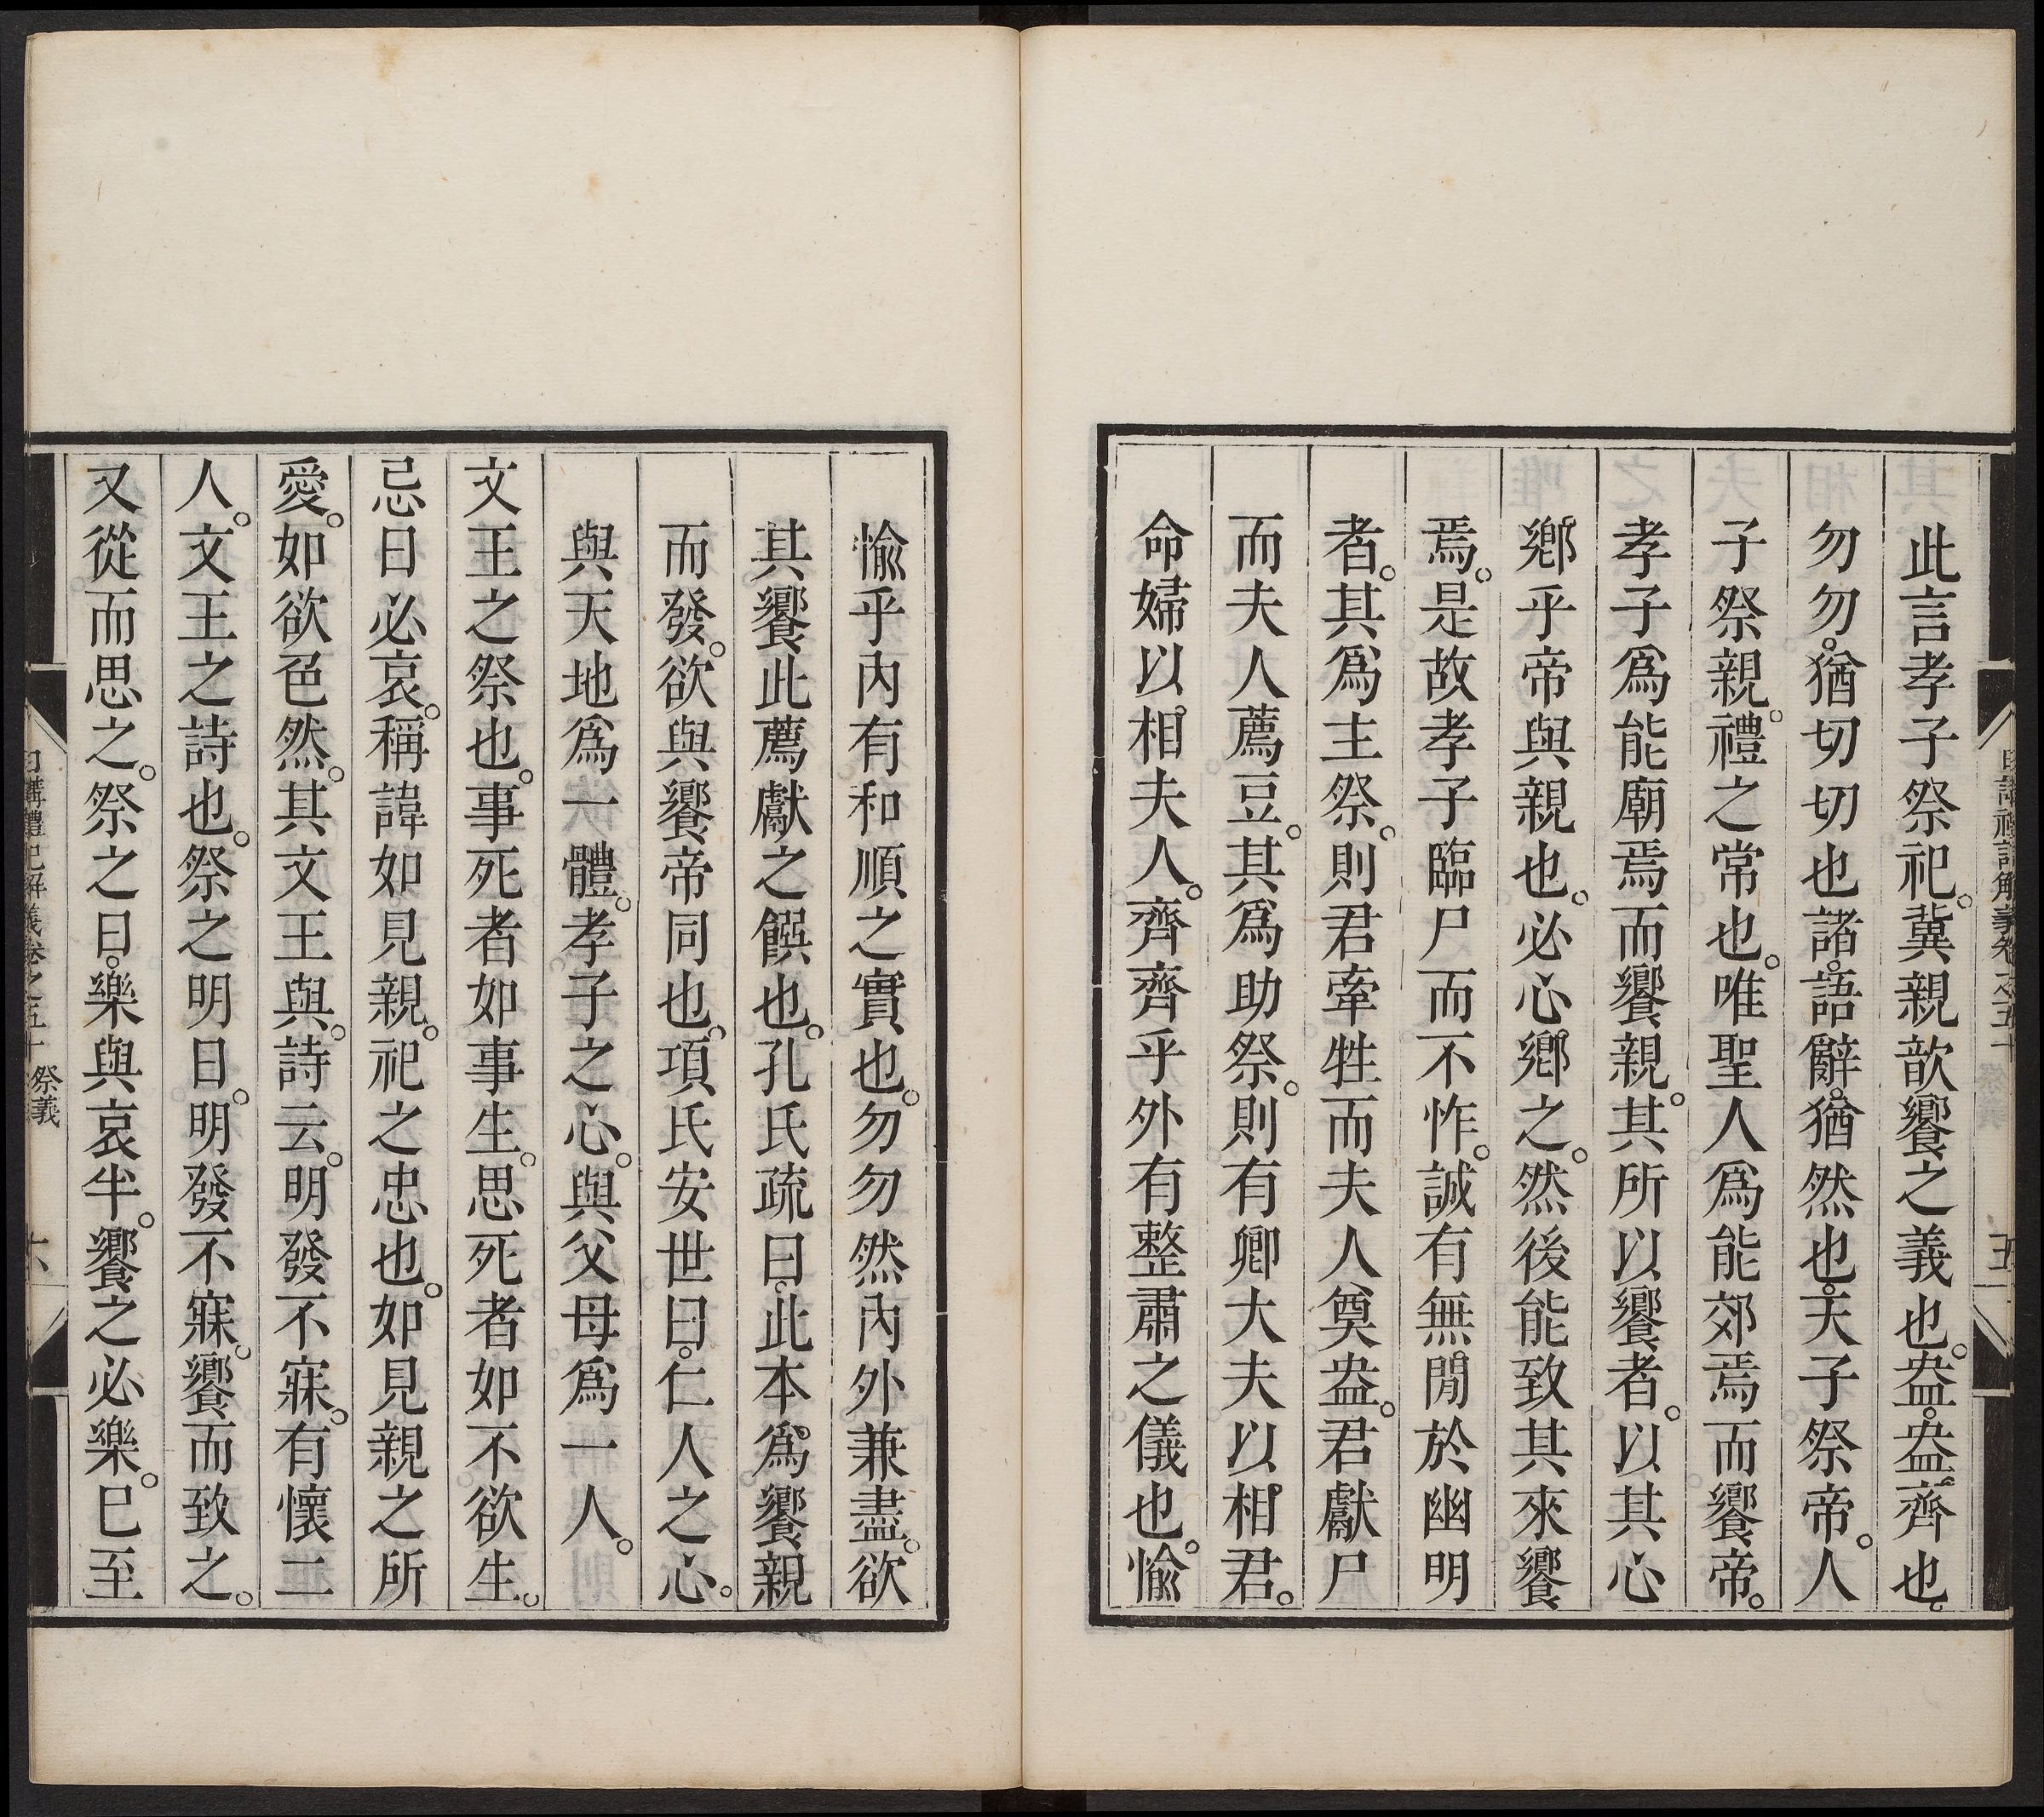 此言孝子祭祀。冀親歆饗之義也。盎。盎齊也。
勿勿。猶切切也。諸。語辭。猶然也。天子祭帝。人
子祭親。禮之常也。唯聖人爲能郊焉而饗帝。
孝子爲能廟焉而饗親。其所以饗者。以其心
鄉乎帝與親也。必心鄉之。然後能致其來饗
焉。是故孝子臨尸而不怍。誠有無閒於幽明
者。其爲主祭。則君牽牲而夫人奠盎。君獻尸
而夫人薦豆。其爲助祭。則有卿大夫以相君。
命婦以相夫人。齊齊乎外有整肅之儀也。愉
日講禮記解義卷之五十 祭義 五
愉乎內有和順之實也。勿勿然內外兼盡。欲
其饗此薦獻之饌也。孔氏疏曰。此本爲饗親
而發。欲與饗帝同也。項氏安世曰。仁人之心。
與天地爲一體。孝子之心。與父母爲一人。
文王之祭也。事死者如事生。思死者如不欲生。
忌日必哀。稱諱如見親。祀之忠也。如見親之所
愛。如欲色然。其文王與。詩云。明發不寐。有懷二
人。文王之詩也。祭之明日。明發不寐。饗而致之。
又從而思之。祭之日。樂與哀半。饗之必樂。已至
日講禮記解義卷之五十 祭義 六